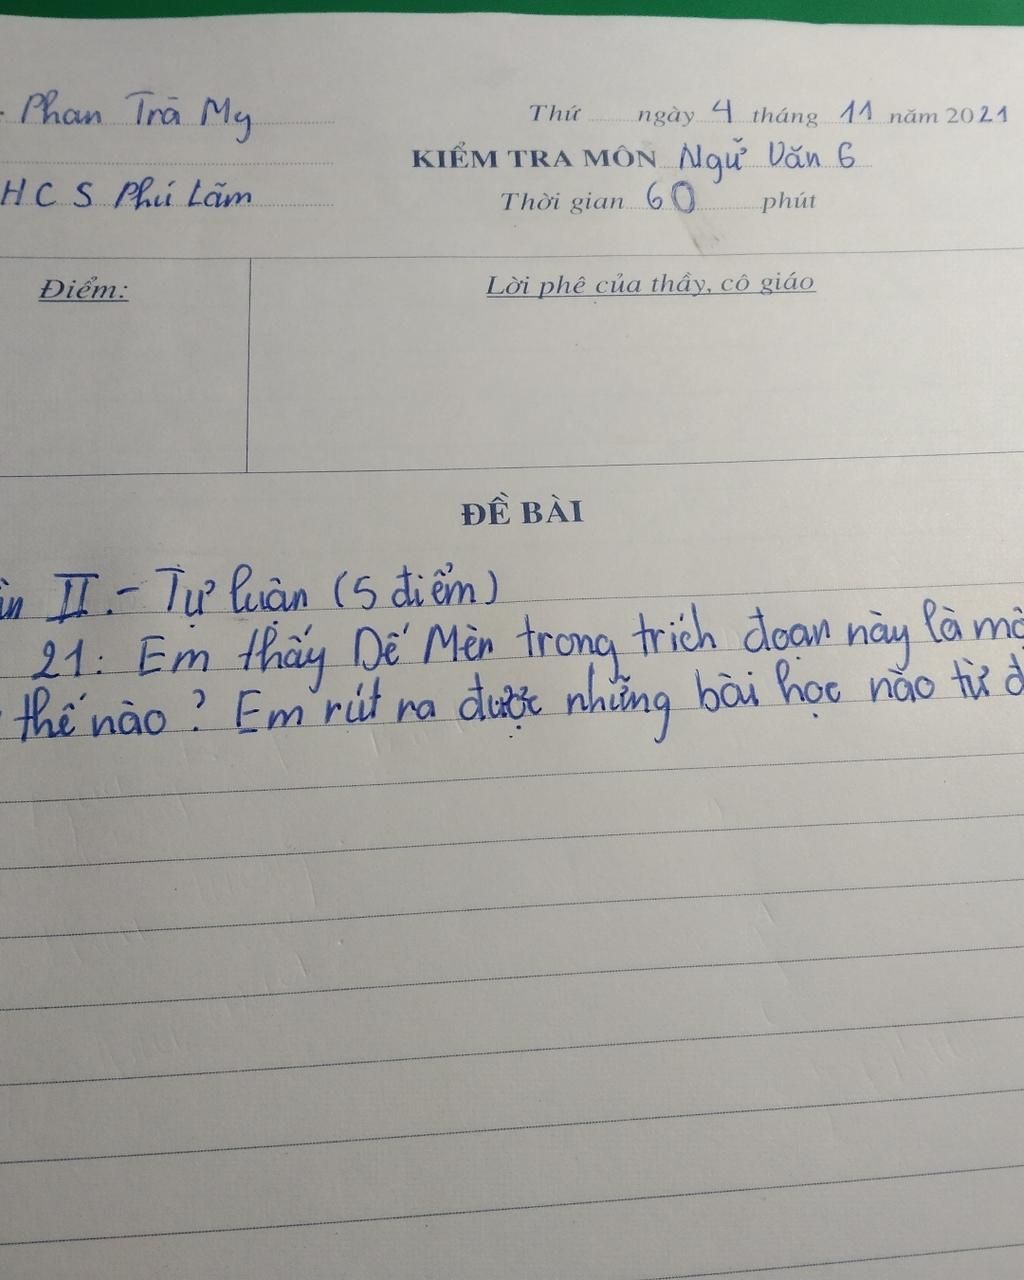 Phan Trà My
Thứ ngày 4 tháng 11 năm 2021
KIỂM TRA MÔN Ngữ Văn 6
HCS Phú Lãm
Thời gian 60 phút
Điểm:
Lời phê của thầy, cô giáo
ĐỀ BÀI
II.- Tự luận (5 điểm)
21: Em thấy Dế Mèn trong trích đoạn này là
thế nào? Em rút ra được những bài học nào từ